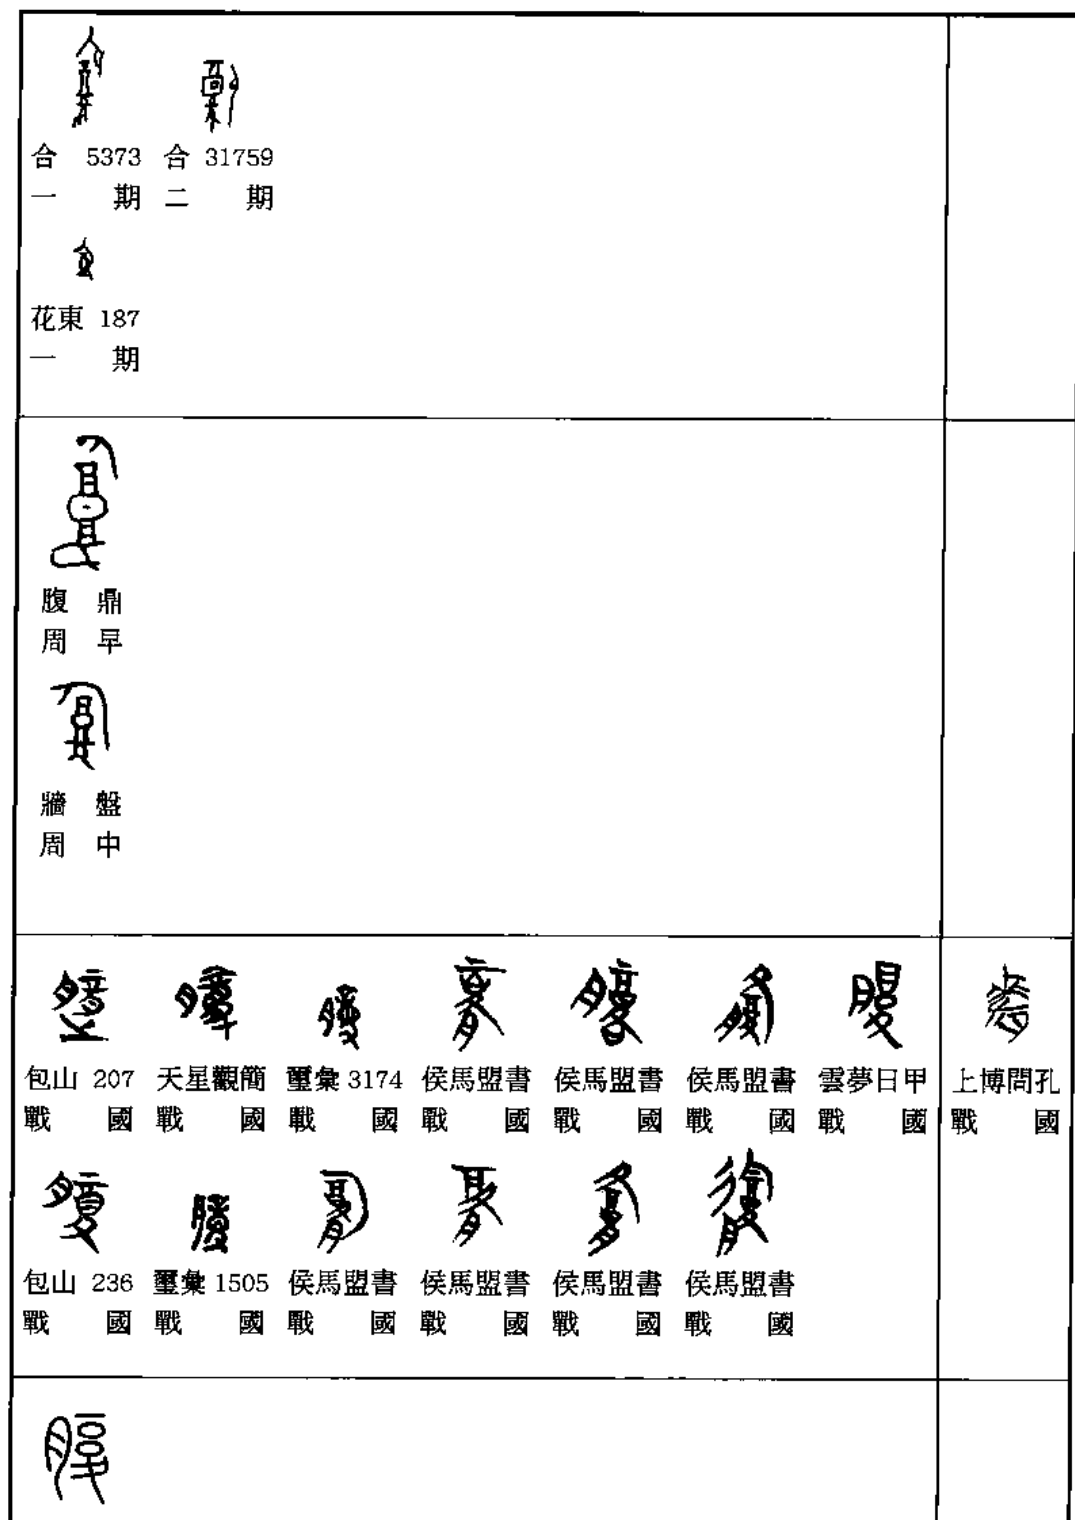 合 5373 合 31759
一 期 二 期
花東 187
一 期
腹 鼎
周 早
牆 盤
周 中
包山 207 天星觀簡 璽彙 3174 侯馬盟書 侯馬盟書 侯馬盟書 雲夢日甲 上博問孔
戰 國 戰 國 戰 國 戰 國 戰 國 戰 國 戰 國 戰 國
包山 236 璽彙 1505 侯馬盟書 侯馬盟書 侯馬盟書 侯馬盟書
戰 國 戰 國 戰 國 戰 國 戰 國 戰 國